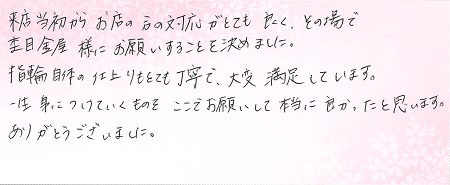 来店当初からお店の方の対応がとても良く、その場で
杢目金屋 様にお願いすることを決めました。
指輪自体の仕上りもとても丁寧で、大変 満足しています。
一生 身につけていくものを ここでお願いして 本当に 良かったと思います。
ありがとうございました。